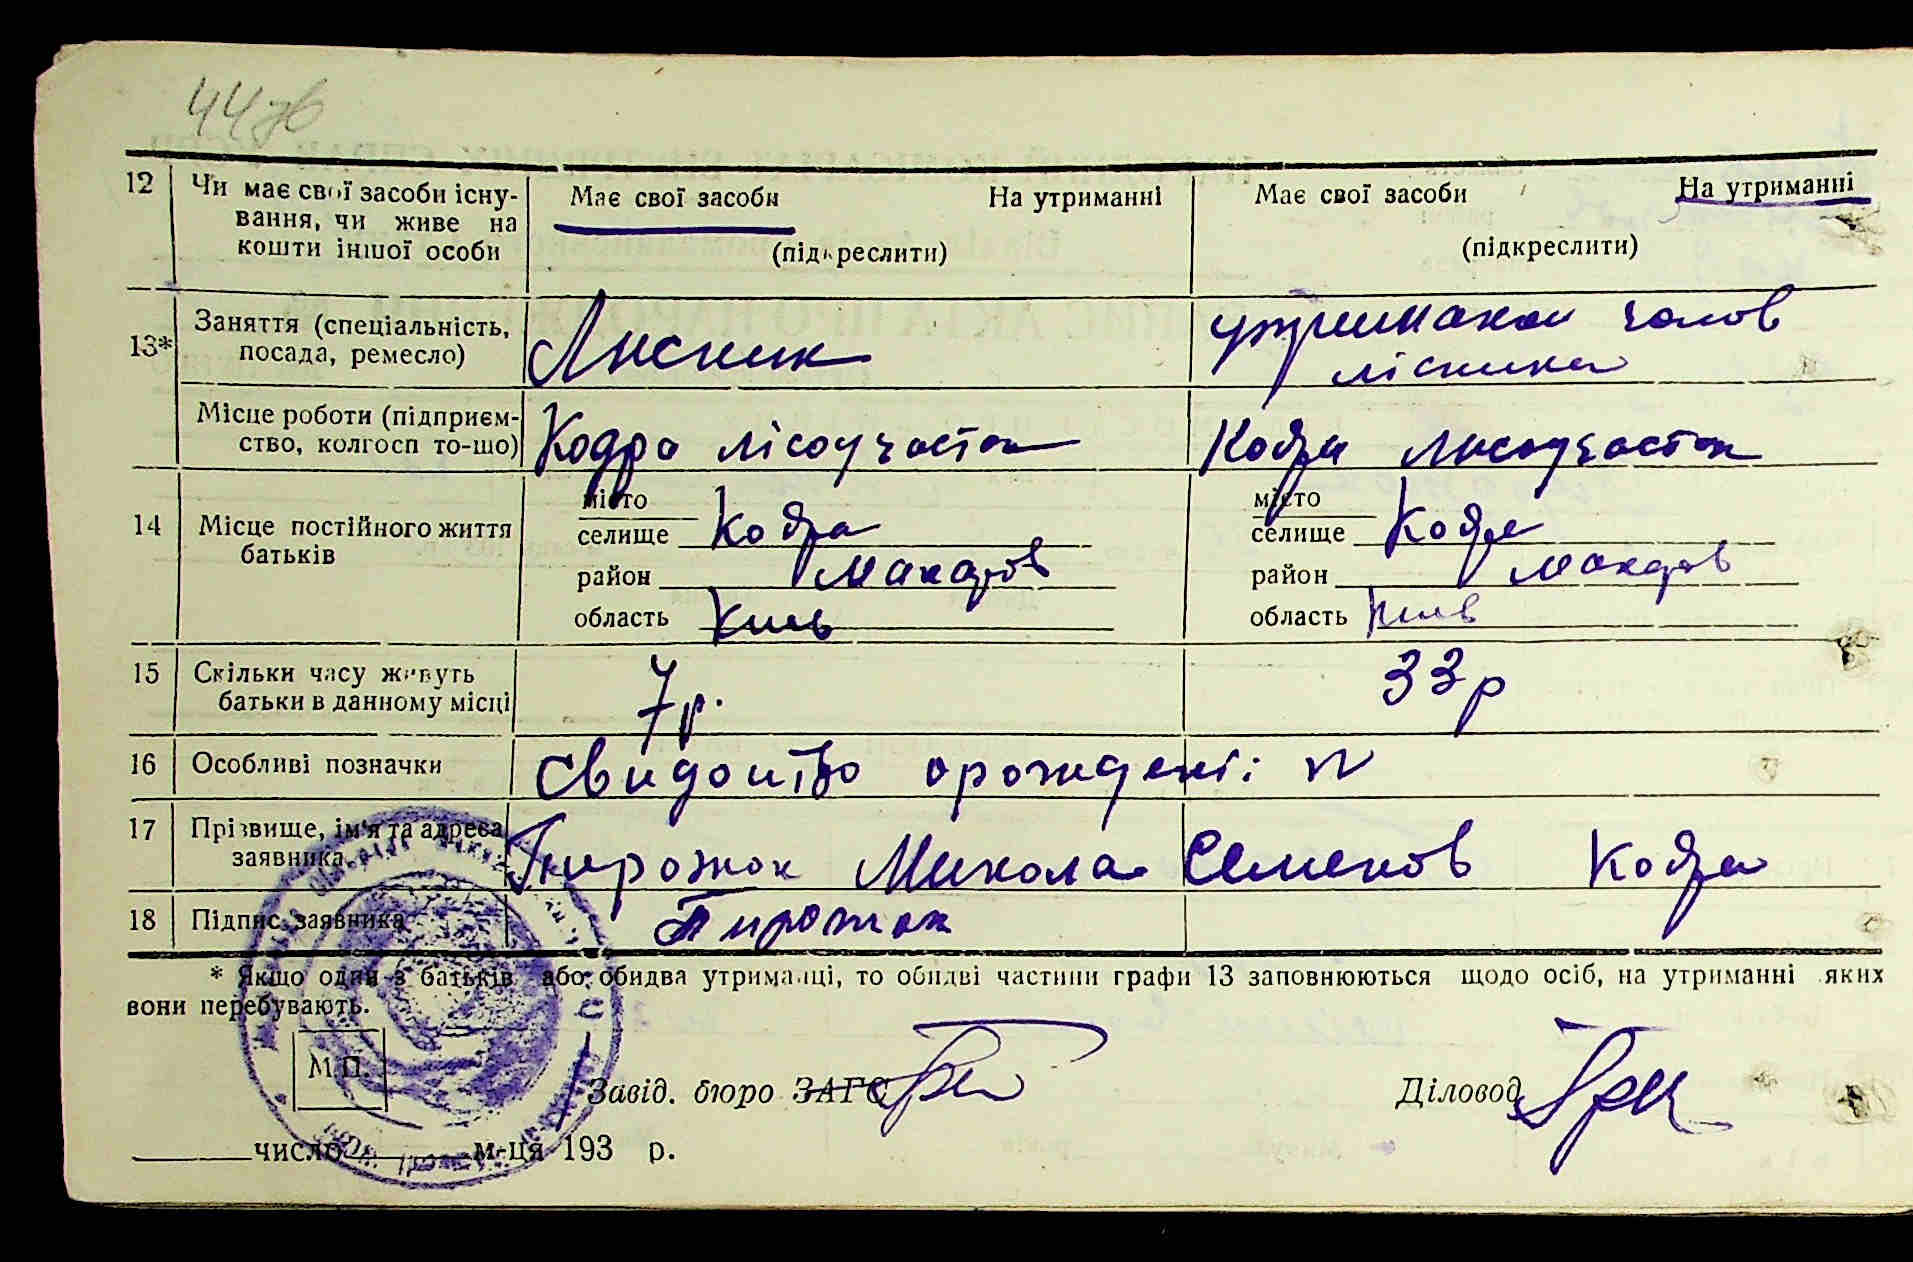 44зв
12 Чи має свої засоби існу- Має свої засоби На утриманні Має свої засоби На утриманні
вання, чи живе на
кошти іншої особи (підкреслити) (підкреслити)
13* Заняття (спеціальність, Лисник утриманка чолов
посада, ремесло) лісника
Місце роботи (підприєм- Кодра лісоучасток Кодра лисоучасток
ство, колгосп то-що)
14 Місце постійного життя місто місто
батьків селище Кодра селище Кодра
район Макарів район Макаров
область Київ область Київ
15 Скільки часу живуть 7 р. 33 р
батьки в данному місці
16 Особливі позначки Свидоцтво орождені: №
17 Прізвище, ім'я та адреса Пирожок Микола Семенов Кодра
заявника
18 Підпис заявника Пирожок
* Якщо один з батьків або обидва утриманці, то обидві частини графи 13 заповнюються щодо осіб, на утриманні яких
вони перебувають.
М.П.
Завід. бюро ЗАГС Діловод
число м-ця 193 р.